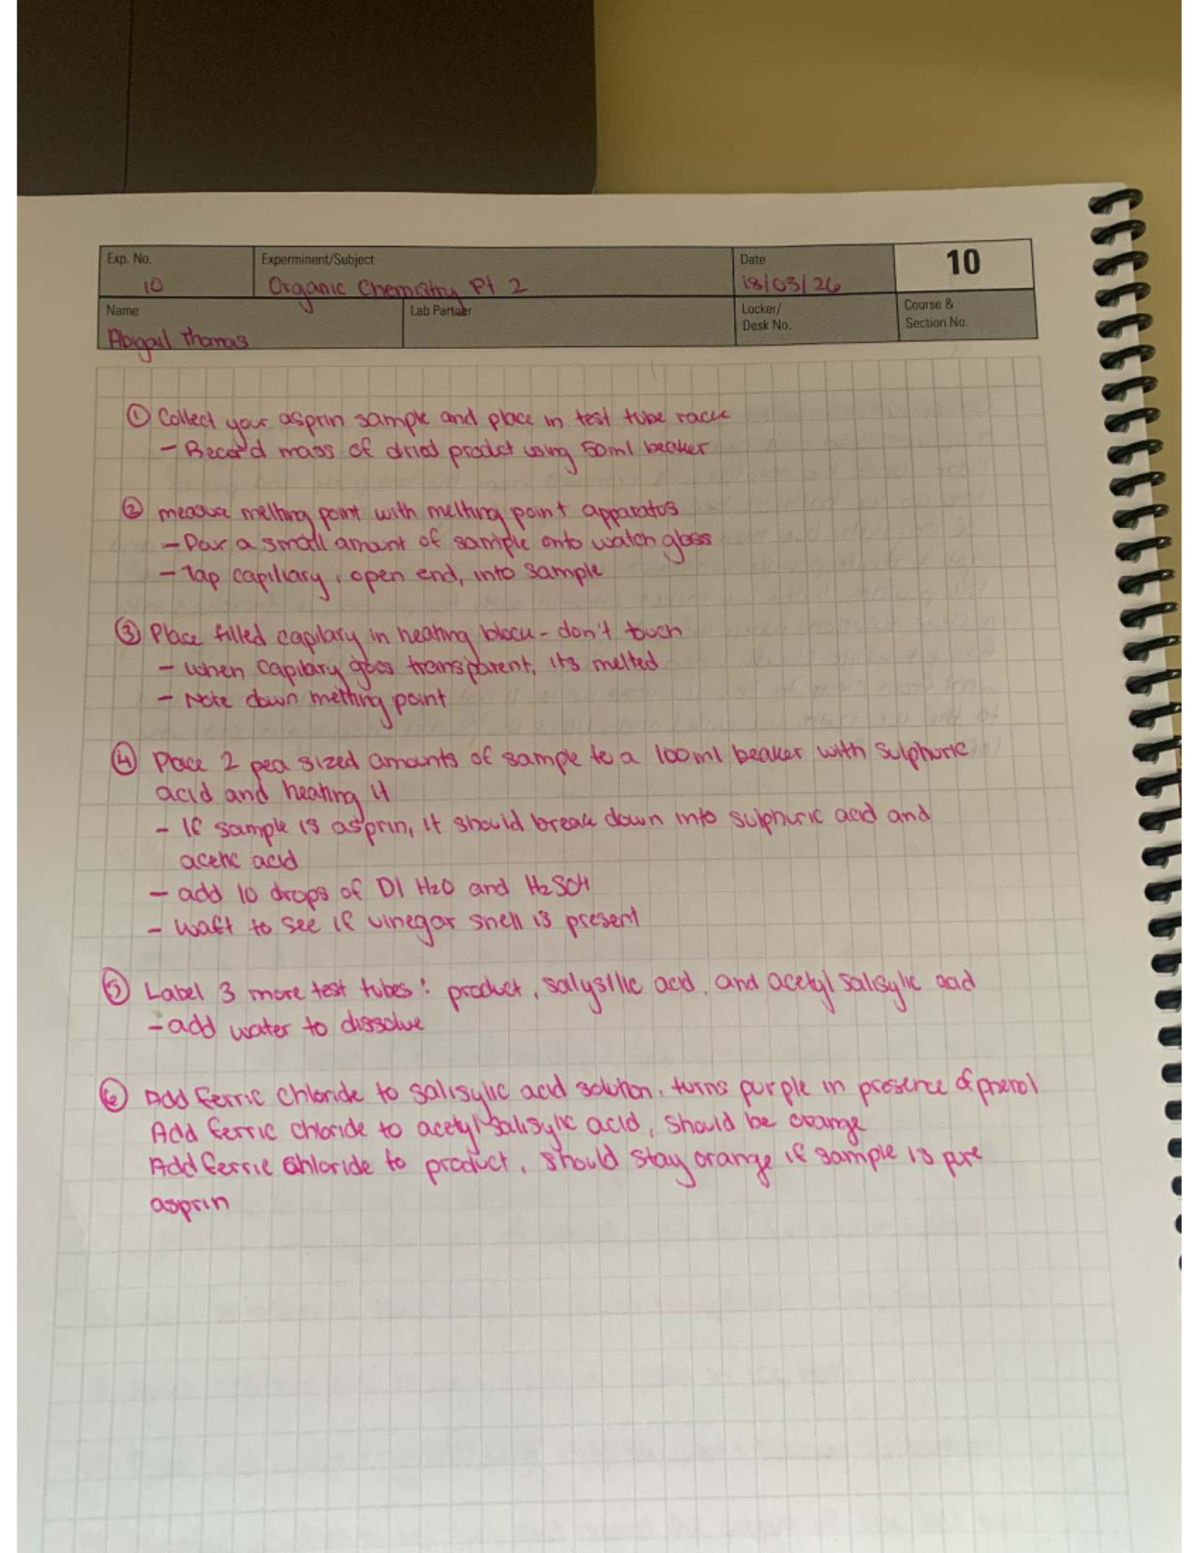 Exp. No.
10
Experminent/Subject
Organic Chemistry Pt 2
Date
18/03/26
10
Name
Abigail Thomas
Lab Partner
Locker/
Desk No.
Course &
Section No.
① Collect your asprin sample and place in test tube rack
- Record mass of dried product using 50ml beaker
② measure melting point with melting point apparatus
- Pour a small amount of sample onto watch glass
- Tap capillary, open end, into sample
③ Place filled capilary in heating block - don't touch
- when capilary goes transparent, its melted
- Note down melting point
④ Place 2 pea sized amounts of sample to a 100ml beaker with sulphuric
acid and heating it
- If sample is asprin, it should break down into sulphuric acid and
acetic acid
- add 10 drops of DI H2O and H2SO4
- waft to see if vinegar smell is present
⑤ Label 3 more test tubes: product, salysilic acid, and acetyl salisylic acid
- add water to dissolve
⑥ Add ferric chloride to salisylic acid solution, turns purple in presence of phenol
Add ferric chloride to acetyl salisylic acid, should be orange
Add ferric chloride to product, should stay orange if sample is pure
asprin